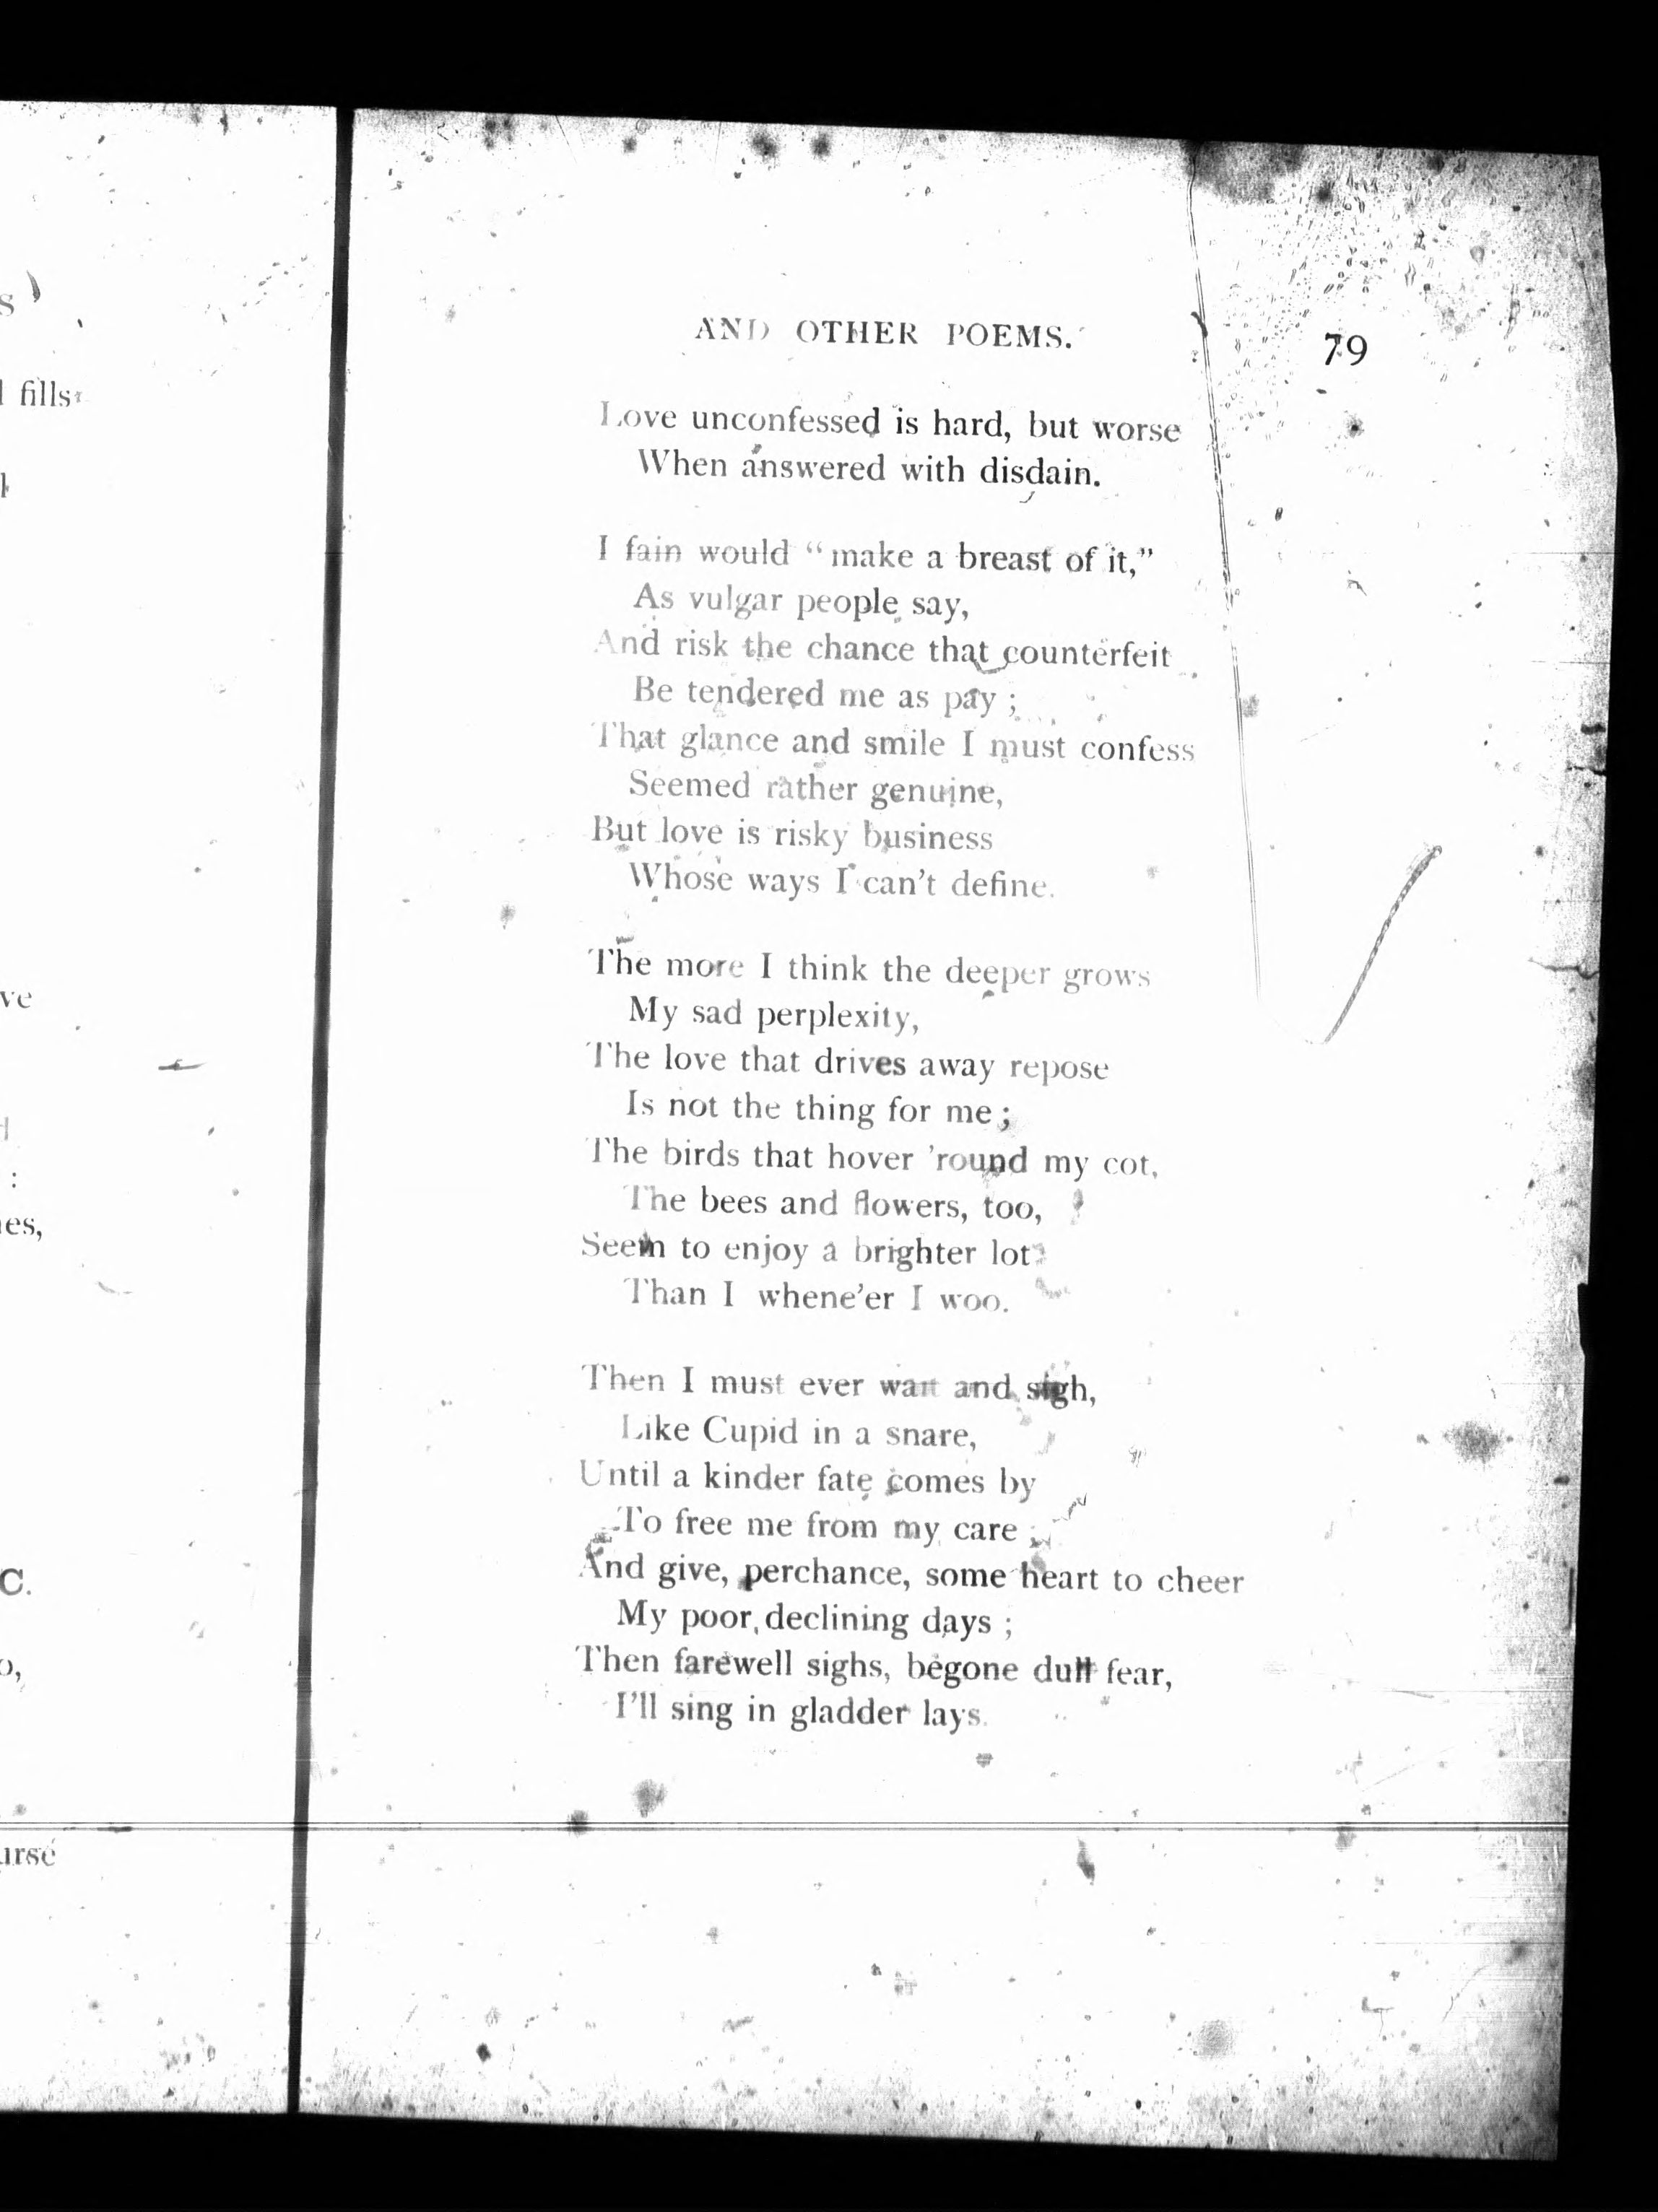 AND OTHER POEMS.
79
Love unconfessed is hard, but worse
When answered with disdain.
I fain would “make a breast of it,”
As vulgar people say,
And risk the chance that counterfeit
Be tendered me as pay ;
That glance and smile I must confess
Seemed rather genuine,
But love is risky business
Whose ways I can’t define.
The more I think the deeper grows
My sad perplexity,
The love that drives away repose
Is not the thing for me ;
The birds that hover ’round my cot,
The bees and flowers, too,
Seem to enjoy a brighter lot
Than I whene’er I woo.
Then I must ever wait and sigh,
Like Cupid in a snare,
Until a kinder fate comes by
To free me from my care ;
And give, perchance, some heart to cheer
My poor declining days ;
Then farewell sighs, begone dull fear,
I’ll sing in gladder lays.
fills